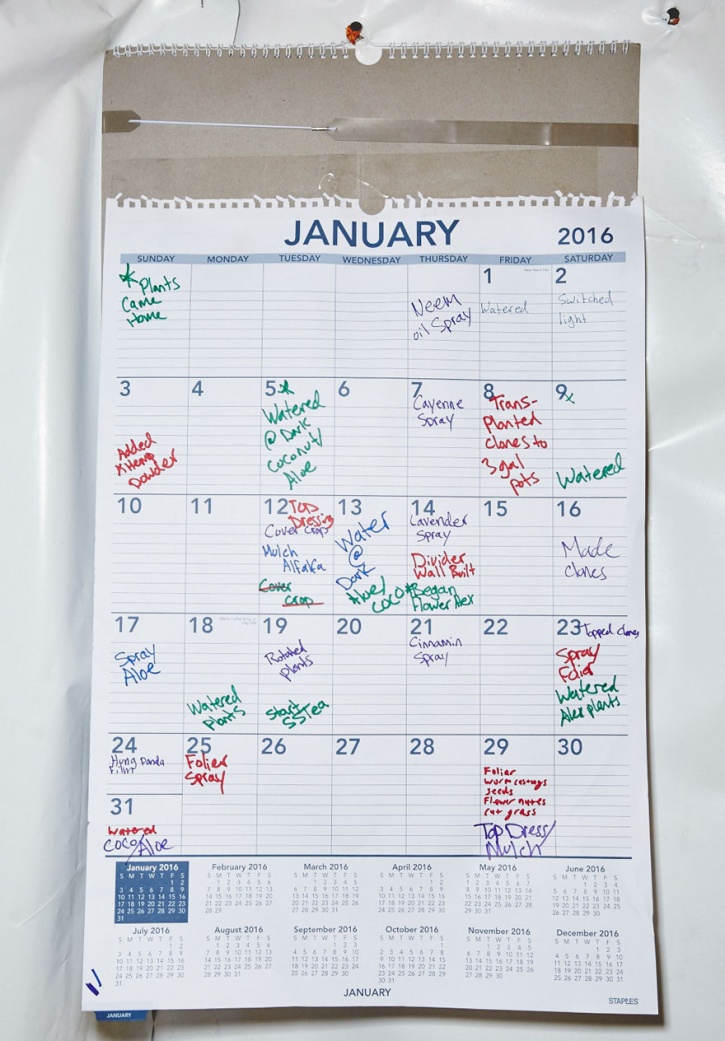 JANUARY 2016
SUNDAY MONDAY TUESDAY WEDNESDAY THURSDAY FRIDAY SATURDAY
Plants
Came
Home
Neem
oil Spray
1
New Year's Day
Watered
2
Switched
light
3
Added
Powder
4
5
Watered
@ Dark
Coconut/
Aloe
6
7
Cayenne
Spray
8
Trans-
Planted
Clones to
3 gal
pots
9
Watered
10
11
12 TOP
Dressing
Cover Crop
Mulch
Alfalfa
Cover
Crop
13
Water
@
Dark
Aloe/
Coco
14
Lavender
Spray
Divider
Wall Built
Began
Flower Alex
15
16
Made
Clones
17
Spray
Aloe
18
Watered
Plants
19
Rotated
Plants
Start
SSTea
20
21
Cinnamin
Spray
22
23 topped clones
Spray
Folier
Watered
Alex plants
24
Hung Panda
Film
25
Folier
Spray
26
27
28
29
Folier
worm castings
seeds
Flower nutes
cut grass
Top Dress/
Mulch
30
31
Watered
Coco/Aloe
January 2016
S M T W T F S
1 2
3 4 5 6 7 8 9
10 11 12 13 14 15 16
17 18 19 20 21 22 23
24 25 26 27 28 29 30
31
February 2016
S M T W T F S
1 2 3 4 5 6
7 8 9 10 11 12 13
14 15 16 17 18 19 20
21 22 23 24 25 26 27
28 29
March 2016
S M T W T F S
1 2 3 4 5
6 7 8 9 10 11 12
13 14 15 16 17 18 19
20 21 22 23 24 25 26
27 28 29 30 31
April 2016
S M T W T F S
1 2
3 4 5 6 7 8 9
10 11 12 13 14 15 16
17 18 19 20 21 22 23
24 25 26 27 28 29 30
May 2016
S M T W T F S
1 2 3 4 5 6 7
8 9 10 11 12 13 14
15 16 17 18 19 20 21
22 23 24 25 26 27 28
29 30 31
June 2016
S M T W T F S
1 2 3 4
5 6 7 8 9 10 11
12 13 14 15 16 17 18
19 20 21 22 23 24 25
26 27 28 29 30
July 2016
S M T W T F S
1 2
3 4 5 6 7 8 9
10 11 12 13 14 15 16
17 18 19 20 21 22 23
24 25 26 27 28 29 30
31
August 2016
S M T W T F S
1 2 3 4 5 6
7 8 9 10 11 12 13
14 15 16 17 18 19 20
21 22 23 24 25 26 27
28 29 30 31
September 2016
S M T W T F S
1 2 3
4 5 6 7 8 9 10
11 12 13 14 15 16 17
18 19 20 21 22 23 24
25 26 27 28 29 30
October 2016
S M T W T F S
1
2 3 4 5 6 7 8
9 10 11 12 13 14 15
16 17 18 19 20 21 22
23 24 25 26 27 28 29
30 31
November 2016
S M T W T F S
1 2 3 4 5
6 7 8 9 10 11 12
13 14 15 16 17 18 19
20 21 22 23 24 25 26
27 28 29 30
December 2016
S M T W T F S
1 2 3
4 5 6 7 8 9 10
11 12 13 14 15 16 17
18 19 20 21 22 23 24
25 26 27 28 29 30 31
JANUARY
STAPLES
JANUARY